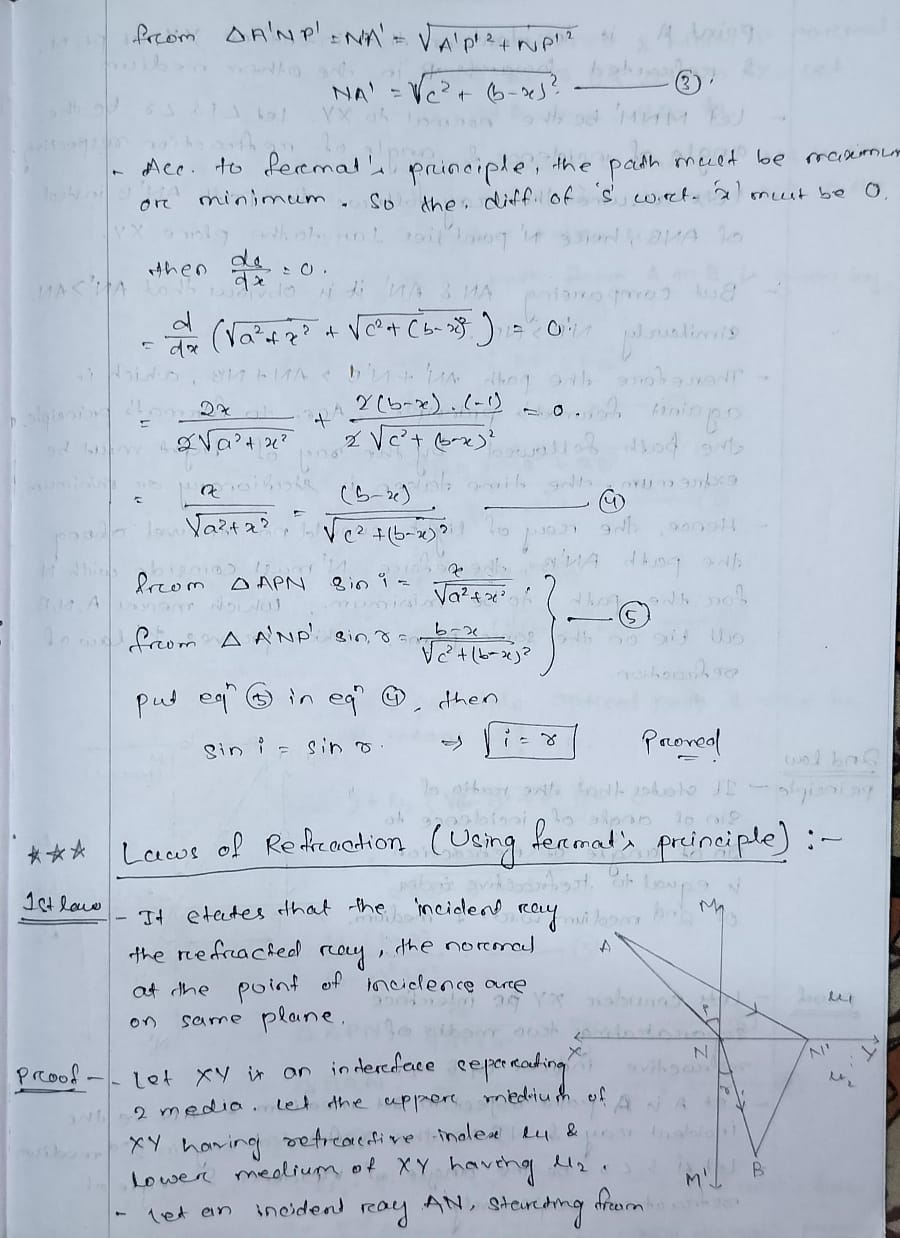 from ΔA'NP' = NA' = √A'P'² + NP'²
NA' = √c² + (b-x)² ——— ③.
- Acc. to fermat's principle, the path must be maximum
or minimum. So the diff. of 's' w.r.t. 'x' must be 0.
then ds/dx = 0.
= d/dx (√a²+x² + √c²+(b-x)²) = 0
= 2x / 2√a²+x² + 2(b-x).(-1) / 2√c²+(b-x)² = 0.
= x / √a²+x² = (b-x) / √c²+(b-x)² ——— ④
from ΔAPN sin i = x / √a²+x²
from ΔA'NP' sin r = b-x / √c²+(b-x)² } — ⑤
put eqⁿ ⑤ in eqⁿ ④, then
sin i = sin r. ⇒ i = r Proved
*** Laws of Refraction (Using fermat's principle) :-
1st law - It states that the incident ray
the refracted ray, the normal
at the point of incidence are
on same plane.
Proof - - Let XY is an interface seperating
2 media. Let the upper medium of
XY having refractive index μ1 &
Lower medium of XY having μ2.
- Let an incident ray AN, starting from
M
A
μ1
i
X
N
N'
Y
μ2
r
M'
B